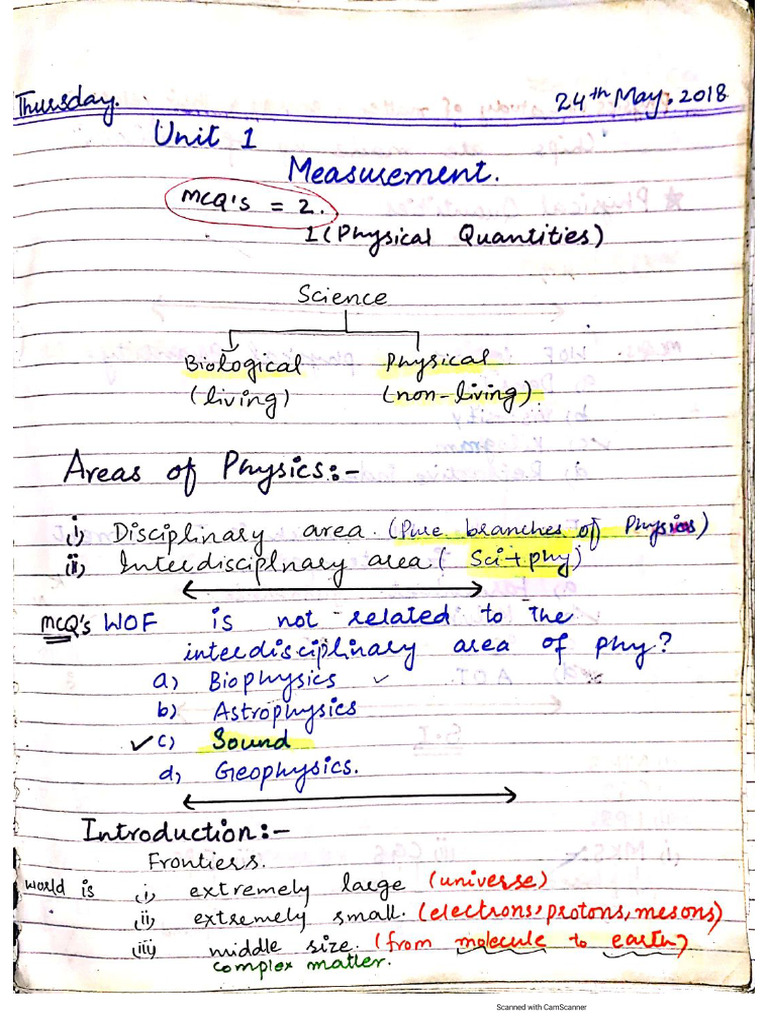 Thursday. 24th May, 2018
Unit 1
Measurement.
MCQ's = 2.
1 (Physical Quantities)
Science
Biological Physical
(living) (non-living)
Areas of Physics:-
i) Disciplinary area. (Pure branches of Physics)
ii) Interdisciplnary area ( Sci + phy)
MCQ's WOF is not related to the
interdisciplinary area of phy?
a) Biophysics ✓
b) Astrophysics
✓ c) Sound
d) Geophysics.
Introduction:-
Frontiers.
world is i) extremely large (universe)
ii) extremely small. (electrons, protons, mesons)
iii) middle size. (from molecule to earth)
complex matter.
Scanned with CamScanner